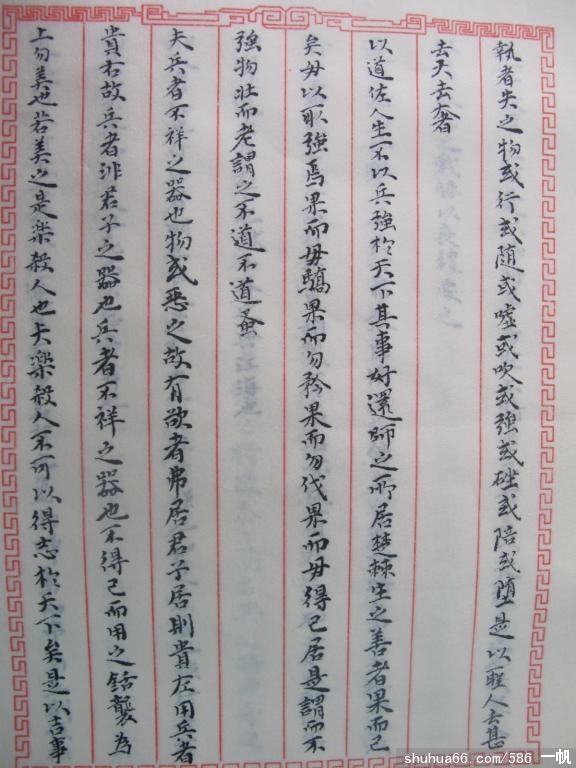 執者失之物或行或随或噓或吹或強或䂳或陪或堕是以聖人去甚
去大去奢
以道佐人主不以兵強於天下其事好還師之所居楚棘生之善者果而已
矣毋以取強焉果而毋驕果而勿矜果而勿伐果而毋得已居是謂而不
強物壯而老謂之不道不道蚤
夫兵者不祥之器也物或惡之故有欲者弗居君子居則貴左用兵者
貴右故兵者非君子之器也兵者不祥之器也不得已而用之銛襲為
上勿美也若美之是楽殺人也夫楽殺人不可以得志於天下矣是以吉事
shuhua66.com/586 一帆